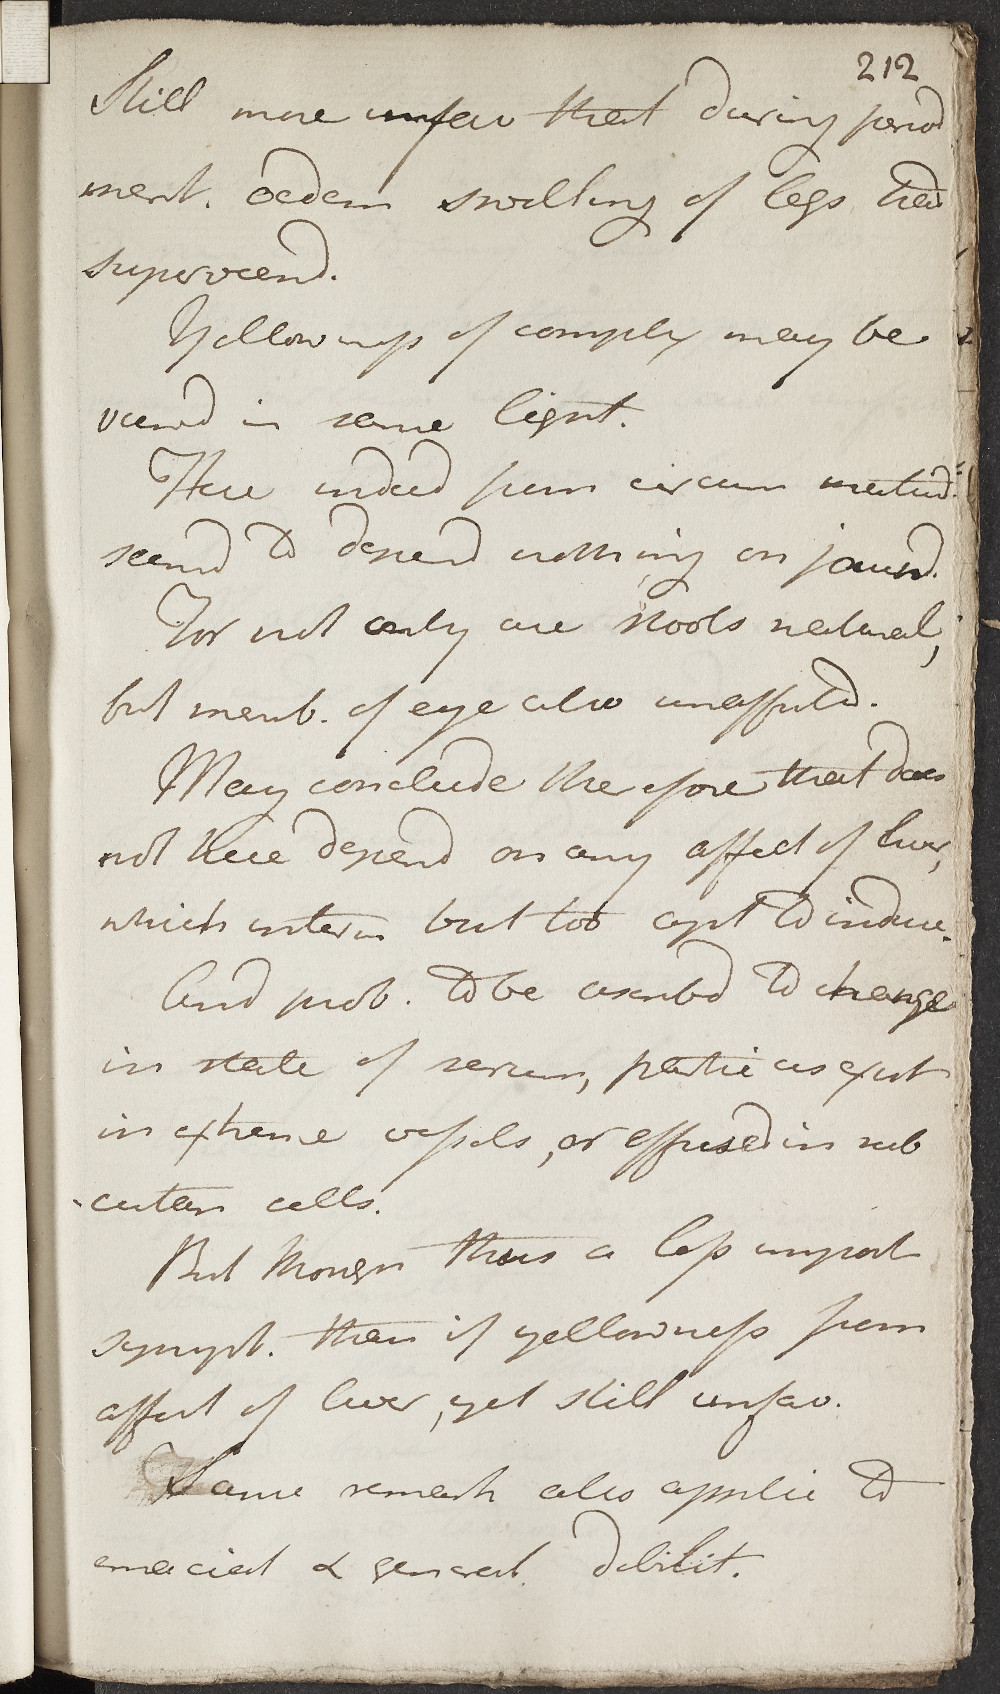 212
Still more unfav that during period
ment. oedem swelling of legs had
superveend.
Yellowness of complex may be
viewd in same light.
Here indeed from circum mentiond
seemd to depend nothing on jaund.
For not only are stools natural,
but memb. of eye also unaffectd.
May conclude therefore that does
not here depend on any affect of liver,
which interm but too apt to induce.
And prob. to be ascribd to change
in state of serum, partic as exist
in extreme vessels, or effused in sub
cutan cells.
But though thus a less import
sympt. than if yellowness from
affect of liver, yet still unfav.
Same remark also applie to
emaciat & general debilit.